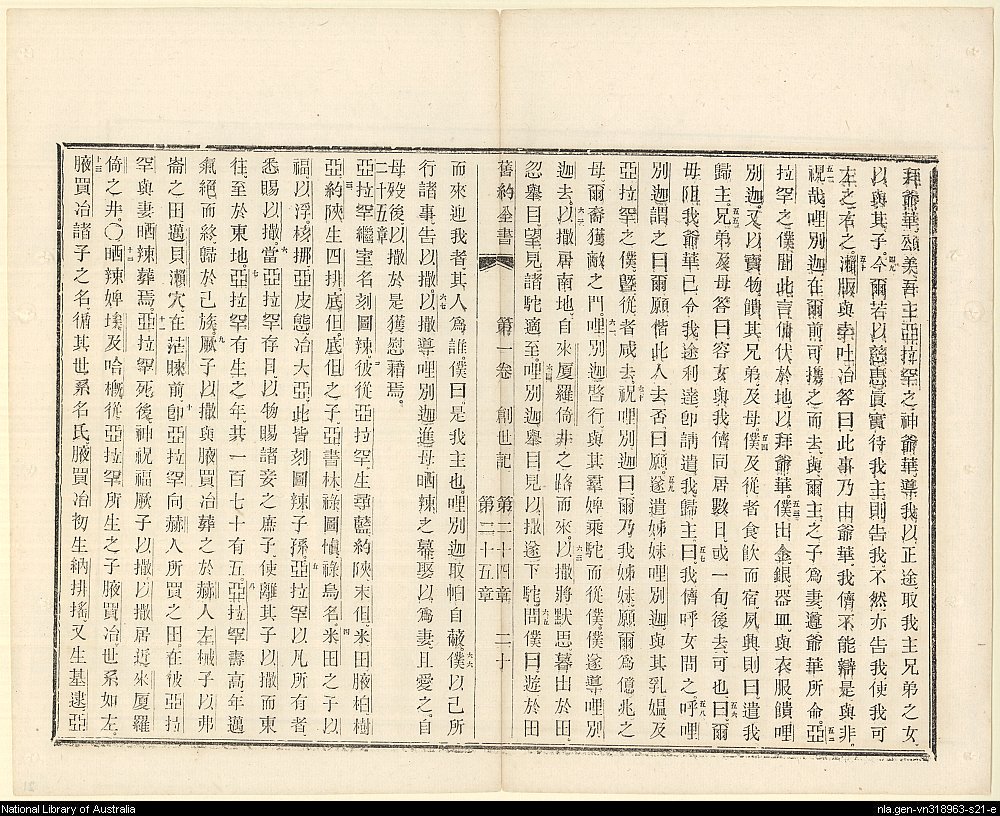 拜爺華頌美吾主亞拉罕之神爺華導我以正途取我主兄弟之女
以與其子今爾若以慈惠眞實待我主則告我不然亦告我使我可
左之右之瀨版與彔吐冶答曰此事乃由爺華我儕不能辯是與非
祝哉哩別迦在爾前可攜之而去與爾主之子爲妻遵爺華所命亞
拉罕之僕聞此言俯伏於地以拜爺華僕出金銀器皿與衣服饋哩
別迦又以寶物饋其兄弟及母僕及從者食飲而宿夙興則曰遣我
歸主兄弟及母答曰容女與我儕同居數日或一旬後去可也曰爾
毋阻我爺華已令我途利達卽請遣我歸主曰我儕呼女問之呼哩
別迦謂之曰爾願偕此人去否曰願遂遣姊妹哩別迦與其乳媼及
亞拉罕之僕曁從者咸去祝哩別迦曰爾乃我姊妹願爾爲億兆之
母爾裔獲敵之門哩別迦啓行與其羣婢乘駝而從僕僕遂導哩別
迦去以撒居南地自來厦羅倚井之路而來以撒將默思暮出於田
忽舉目望見諸駝適至哩別迦舉目見以撒遂下駝問僕曰遊於田
舊約全書 第一卷 創世記 第二十四章 第二十五章 二十
而來迎我者其人爲誰僕曰是我主也哩別迦取帕自蔽僕以己所
行諸事告以撒以撒導哩別迦進母晒辣之幕娶以爲妻且愛之自
母歿後以撒於是獲慰藉焉
二十五章
亞拉罕繼室名刻圖辣彼從亞拉罕生尋藍約陝末但米田腋柏樹
亞約陝生四排底但底但之子亞書林祿圖愼祿烏名米田之子以
福以浮核挪亞皮態冶大亞此皆刻圖辣子孫亞拉罕以凡所有者
悉賜以撒當亞拉罕存日以物賜諸妾之庶子使離其子以撒而東
往至於東地亞拉罕有生之年共一百七十有五亞拉罕壽高年邁
氣絕而終歸於己族厥子以撒與腋買冶葬之於赫人左械子以弗
崙之田邁貝瀨穴在茫睞前卽亞拉罕向赫人所買之田在彼亞拉
罕與妻晒辣葬焉亞拉罕死後神祝福厥子以撒以撒居近來厦羅
倚之井〇晒辣婢埃及哈概從亞拉罕所生之子腋買冶世系如左
腋買冶諸子之名循其世系名氏腋買冶初生納排搖又生基逮亞
National Library of Australia
nla.gen-vn318963-s21-e